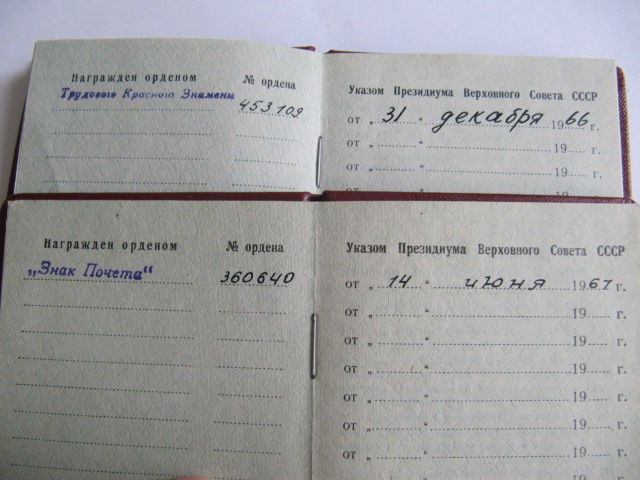 Награжден орденом № ордена
Трудового Красного Знамени 453109
Указом Президиума Верховного Совета СССР
от „ 31 “ декабря 1966 г.
от „ “ 19 г.
от „ “ 19
Награжден орденом № ордена
„Знак Почета“ 360640
Указом Президиума Верховного Совета СССР
от „ 14 “ июня 1967 г.
от „ “ 19 г.
от „ “ 19 г.
от „ “ 19 г.
от „ “ 19 г.
от „ “ 19 г.
от „ “ 19 г.